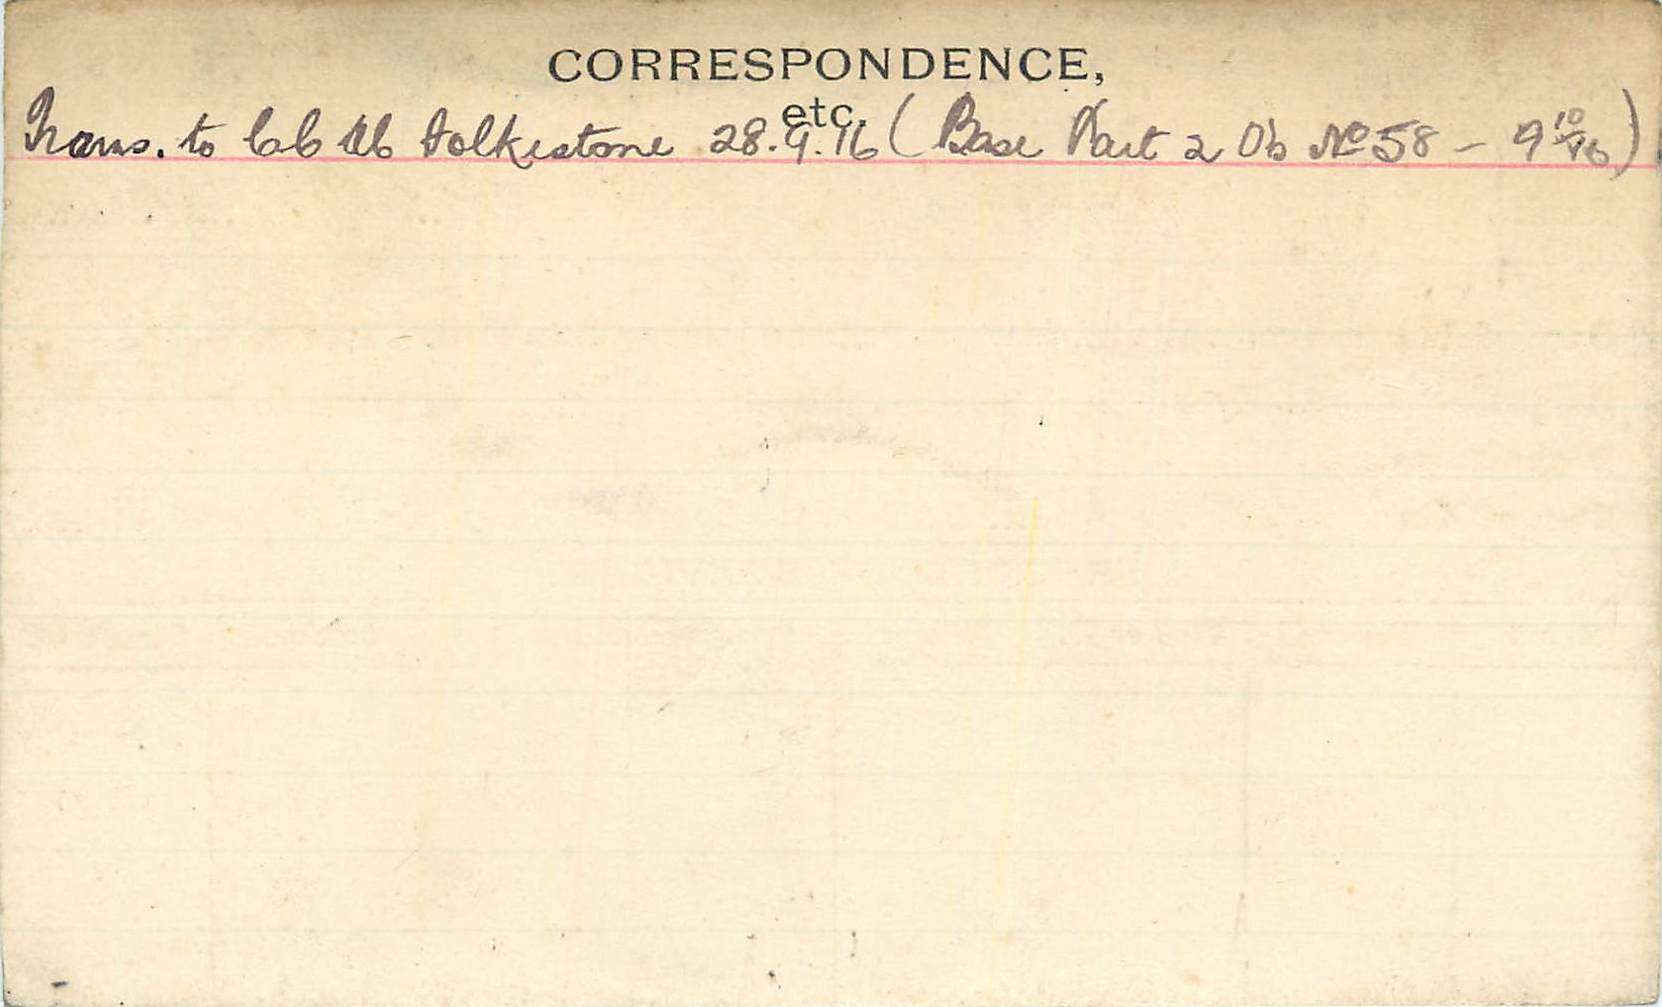 CORRESPONDENCE,
etc.
Trans. to Cab Db Folkestone 28.9.16 (Base Part 2 Do No 58 - 9/10/16)